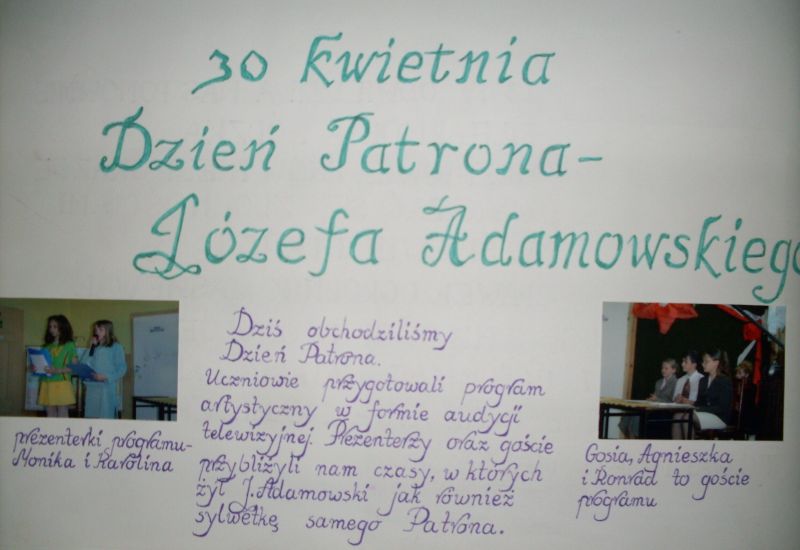 30 kwietnia
Dzień Patrona-
Józefa Adamowskiego
Dziś obchodziliśmy
Dzień Patrona.
Uczniowie przygotowali program
artystyczny w formie audycji
telewizyjnej. Prezenterzy oraz goście
przybliżyli nam czasy, w których
żył J. Adamowski jak również
sylwetkę samego Patrona.
prezenterki programu-
Monika i Karolina
Gosia, Agnieszka
i Konrad to goście
programu